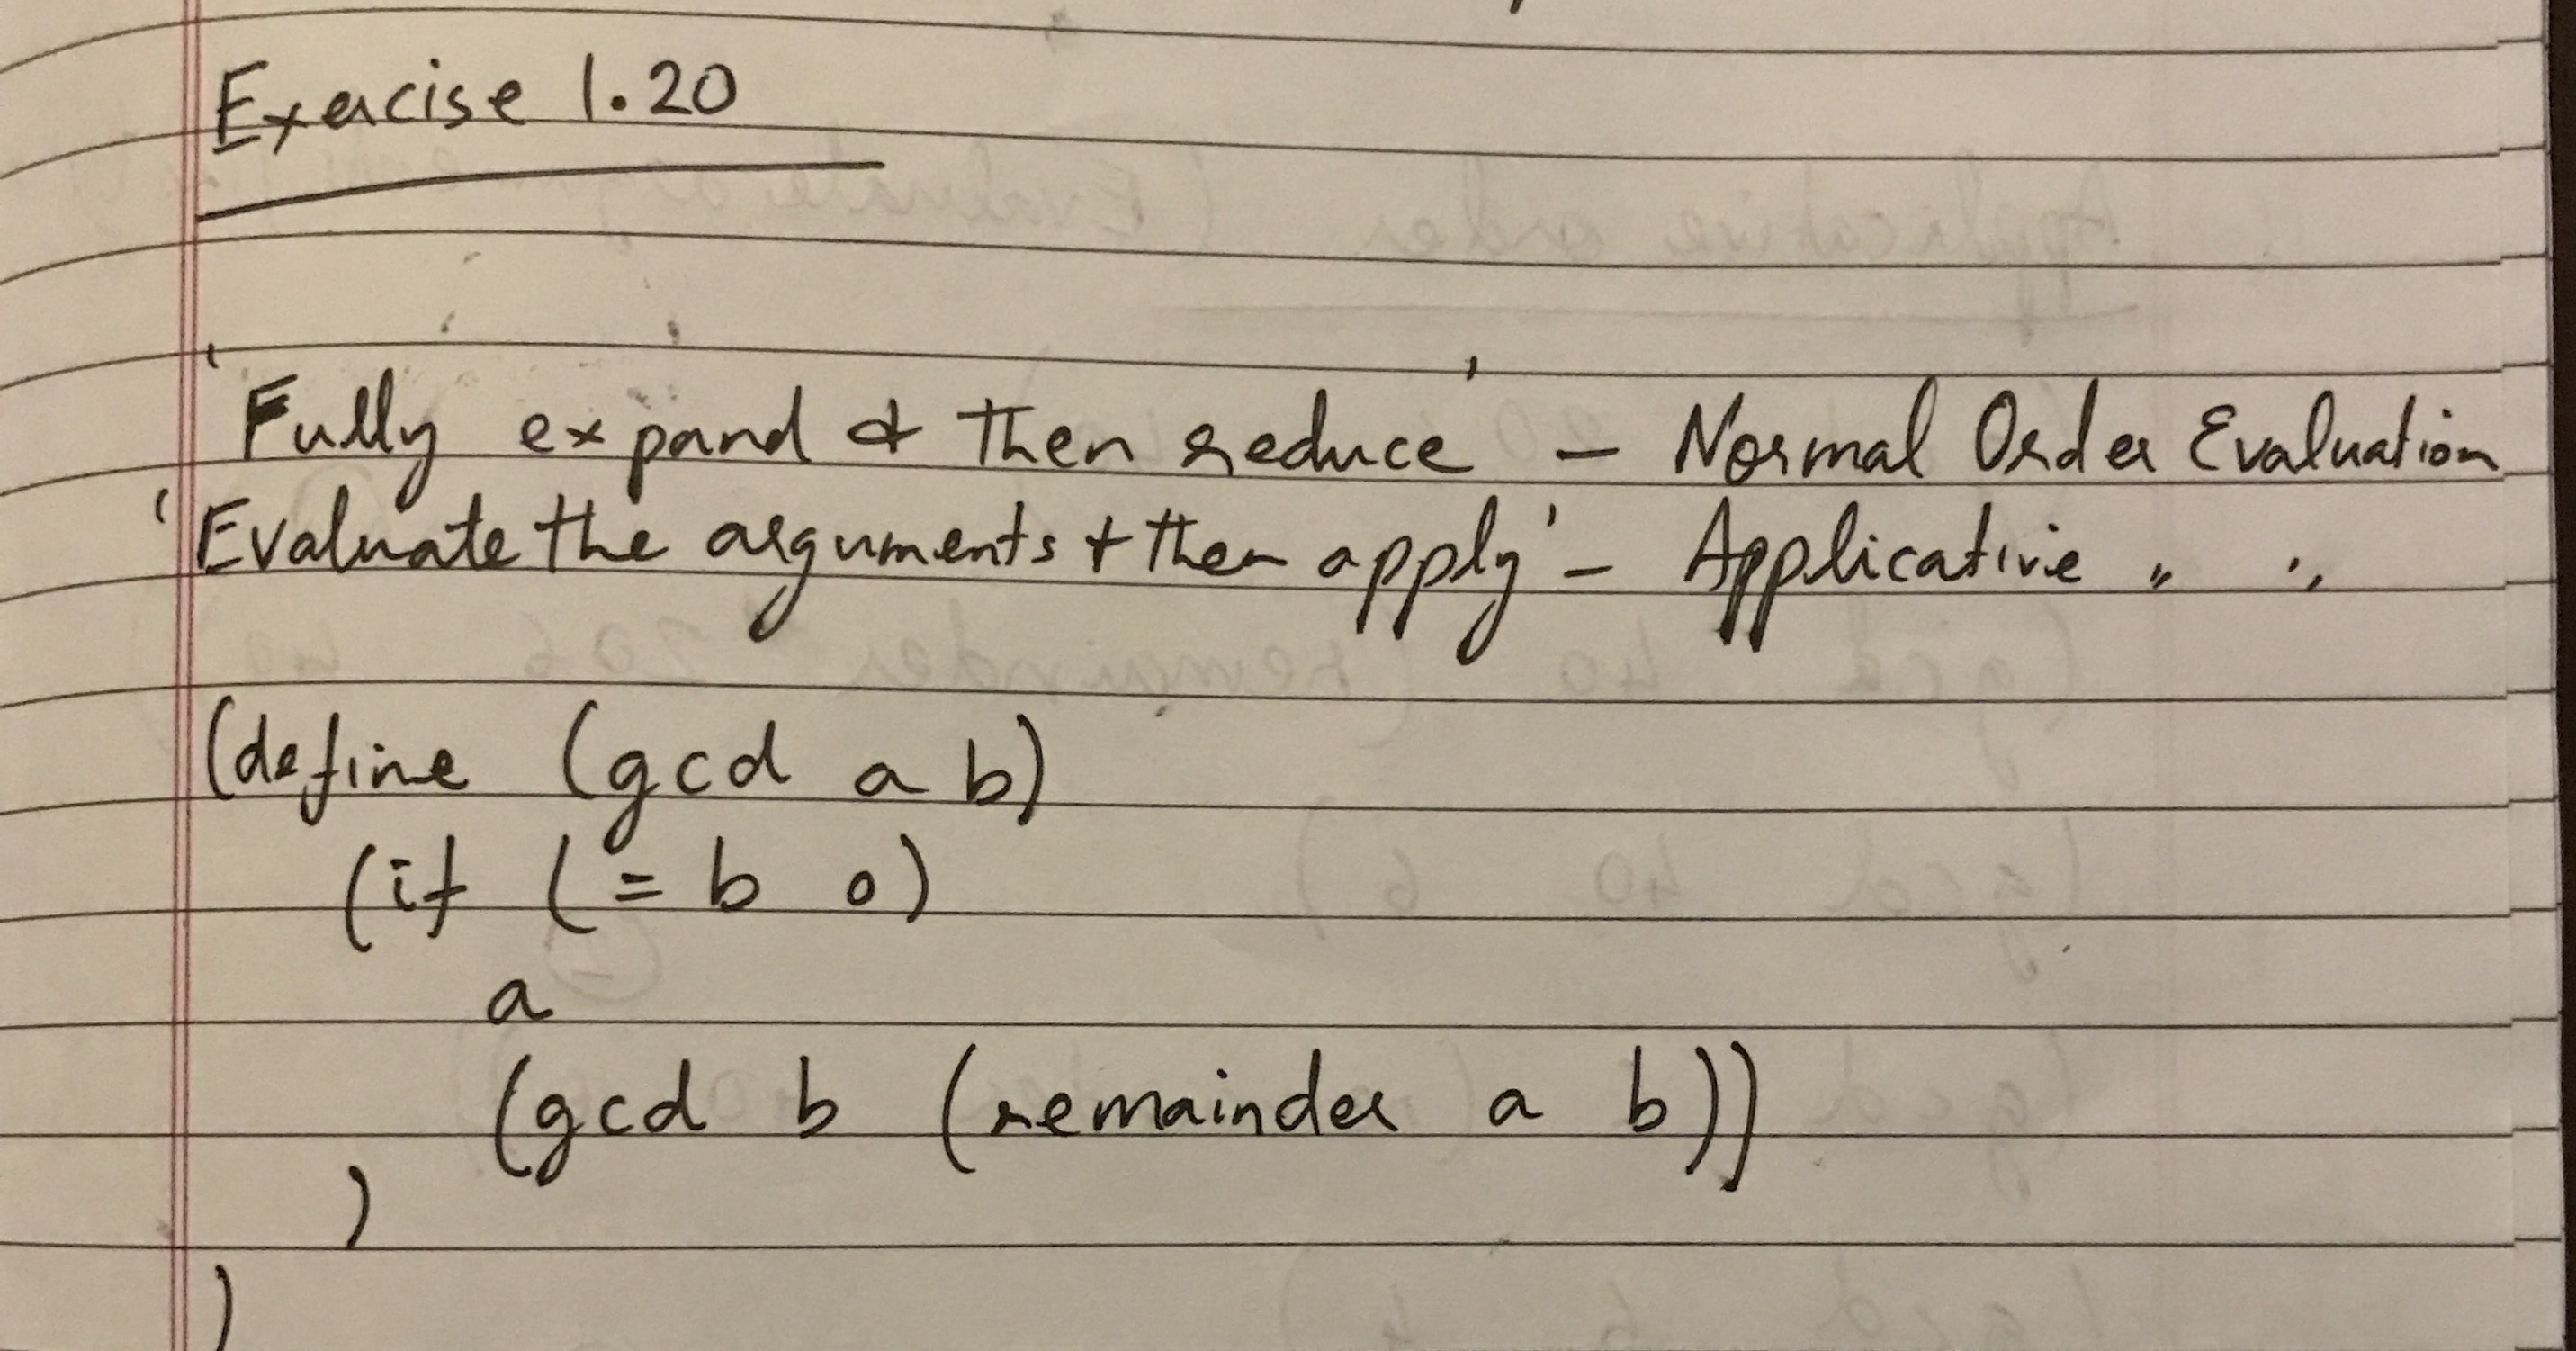 Exercise 1.20
'Fully expand & then reduce' – Normal Order Evaluation
'Evaluate the arguments & then apply' – Applicative " "
(define (gcd a b)
(if (= b 0)
a
(gcd b (remainder a b))
)
)